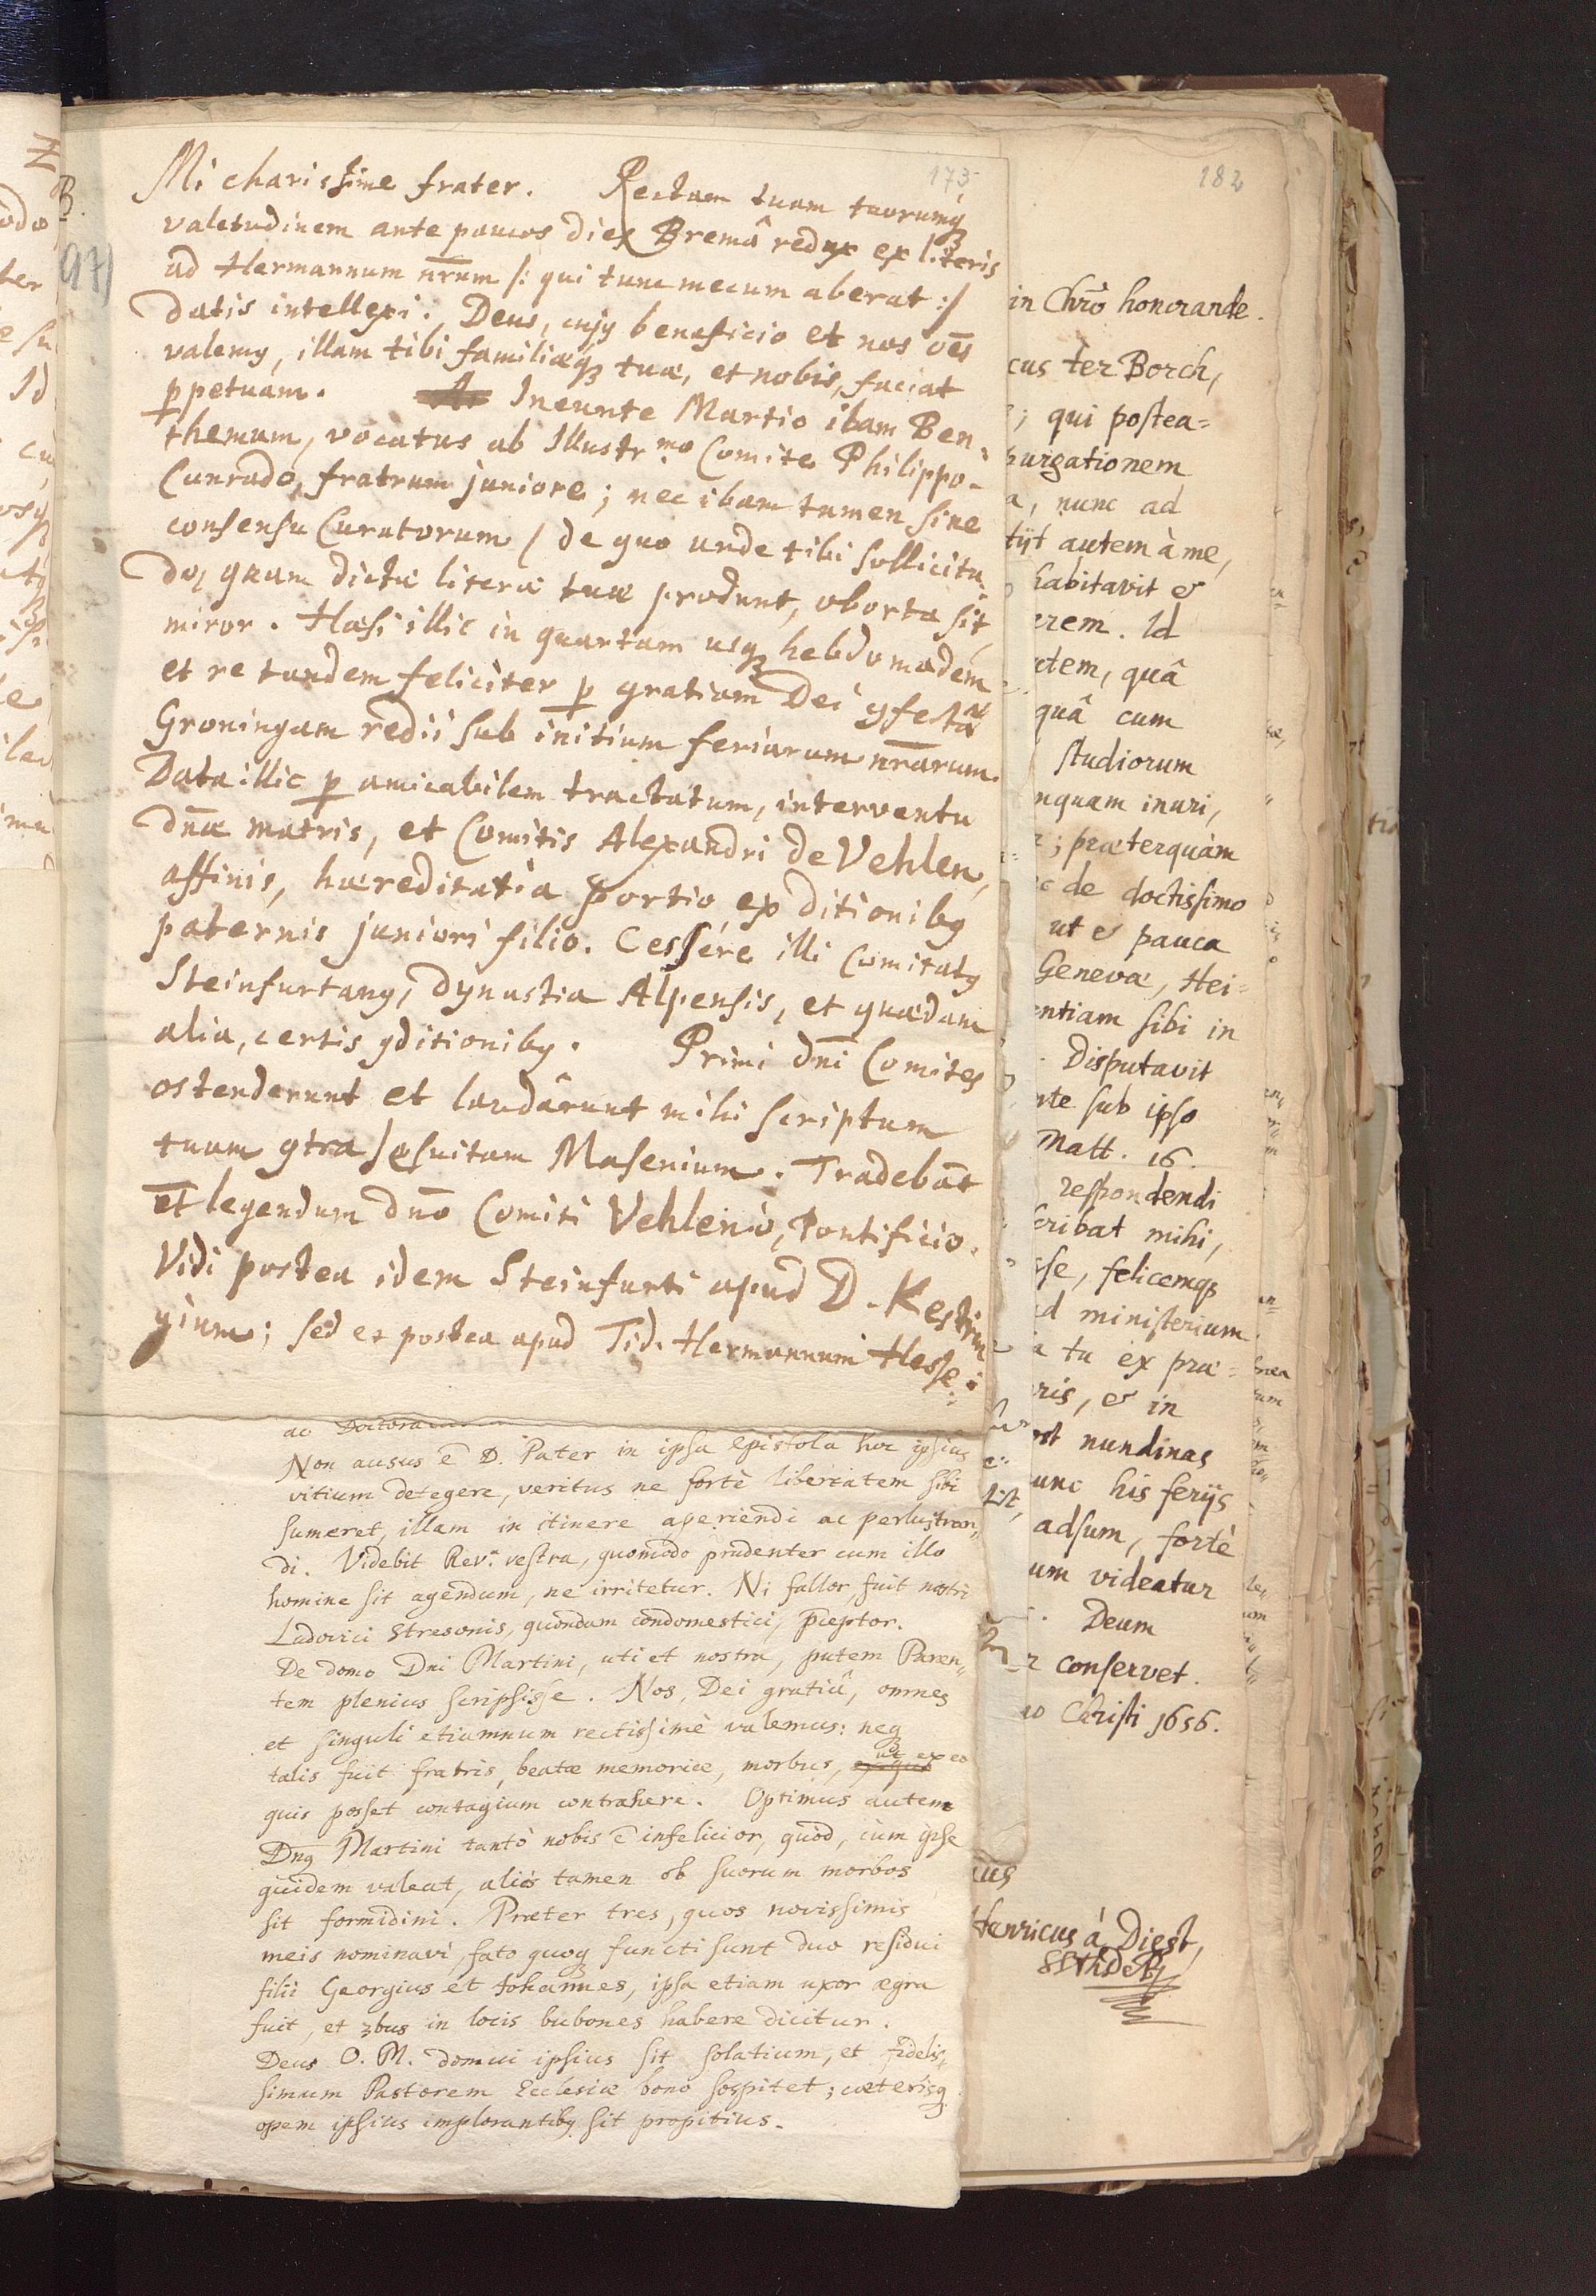 173
182
B.
97)
Mi charissime frater. Rectam tuam tuorumq;
valetudinem ante paucos dies Bremâ redux ex literis
ad Hermannum nr̃um /: qui tunc mecum aberat :/
datis intellexi. Deus, cujꝰ beneficio et nos oẽs
valemꝰ, illam tibi familiæq; tuæ, et nobis, faciat
ꝑpetuam. Ineunte Martio ibam Ben-
themum, vocatus ab Illustr.mo Comite Philippo-
Cunrado, fratrum juniore; nec ibam tamen sine
consensu Curatorum / de quo unde tibi sollicitu-
do, quam dictæ literæ tuæ produnt, oborta sit,
miror. Hæsi illic in quartam usq; hebdomadem
et re tandem feliciter ꝑ gratiam Dei ꝯfectâ
Groningam redii sub initium feriarum nr̃arum.
Data illic ꝑ amicabilem tractatum, interventu
dn̄æ matris, et Comitis Alexandri de Vehlen,
affinis, hæreditatia portio ex ditionibꝰ
paternis juniori filio. Cessére illi comitatꝰ
Steinfurtanꝰ, dynastia Alpensis, et quædam
alia, certis ꝯditionibꝰ. Primi dn̄i Comites
ostenderunt et laudârunt mihi scriptum
tuum ꝯtra Jesuitam Masenium. Tradebãt
et legendum dn̄o Comiti Vehlenio, Pontificio.
Vidi postea idem Steinfurti apud D. Kestrin
gium; sed et postea apud Tid. Hermannum Hesse;
ac Doctora
Non ausus ē D. Pater in ipsa epistola hoc ipsius
vitium detegere, veritus ne fortè libertatem sibi
sumeret, illam in itinere aperiendi ac perlustran„
di. Videbit Rev.a vestra, quomodo prudenter cum illo
homine sit agendum, ne irritetur. Ni fallor, fuit nostri
Ludovici Stresonis, quondam condomestici, p̄ceptor.
De domo Dni Martini, uti et nostra, putem Paren„
tem plenius scripsisse. Nos, Dei gratiâ, omnes
et singuli etiamnum rectissimè valemus: neq;
talis fuit fratris, beatæ memoriæ, morbus, ut ex eo
quis posset contagium contrahere. Optimus autem
Dnꝰ Martini tantò nobis ē infelicior, quòd, cùm ipse
quidem valeat, aliis tamen ob suorum morbos
sit formidini. Præter tres, quos novissimis
meis nominavi, fato quoq; functi sunt duo residui
filii Georgius et Johannes, ipsa etiam uxor ægra
fuit, et 3bus in locis bubones habere dicitur.
Deus O. M. domui ipsius sit solatium, et fidelis„
simum Pastorem Ecclesiæ bono sospitet; cæterisq;
opem ipsius implorantibꝰ sit propitius.
in Chrõ honorande.
cus ter Borch,
; qui postea=
purgationem
a, nunc ad
tijt autem à me,
habitavit &
erem. Id
tem, quâ
quâ cum
studiorum
nquam inuri,
; præterquàm
c de doctissimo
ut & pauca
Geneva, Hei=
entiam sibi in
Disputavit
rte sub ipso
Matt. 16.
respondendi
scribat mihi,
sse, felicemq;
ad ministerium
a tu ex præ=
ris, & in
ost nundinas
unc his ferijs
adsum, fortè
um videatur
Deum
conservet.
Christi 1656.
ius
Henricus à Diest,